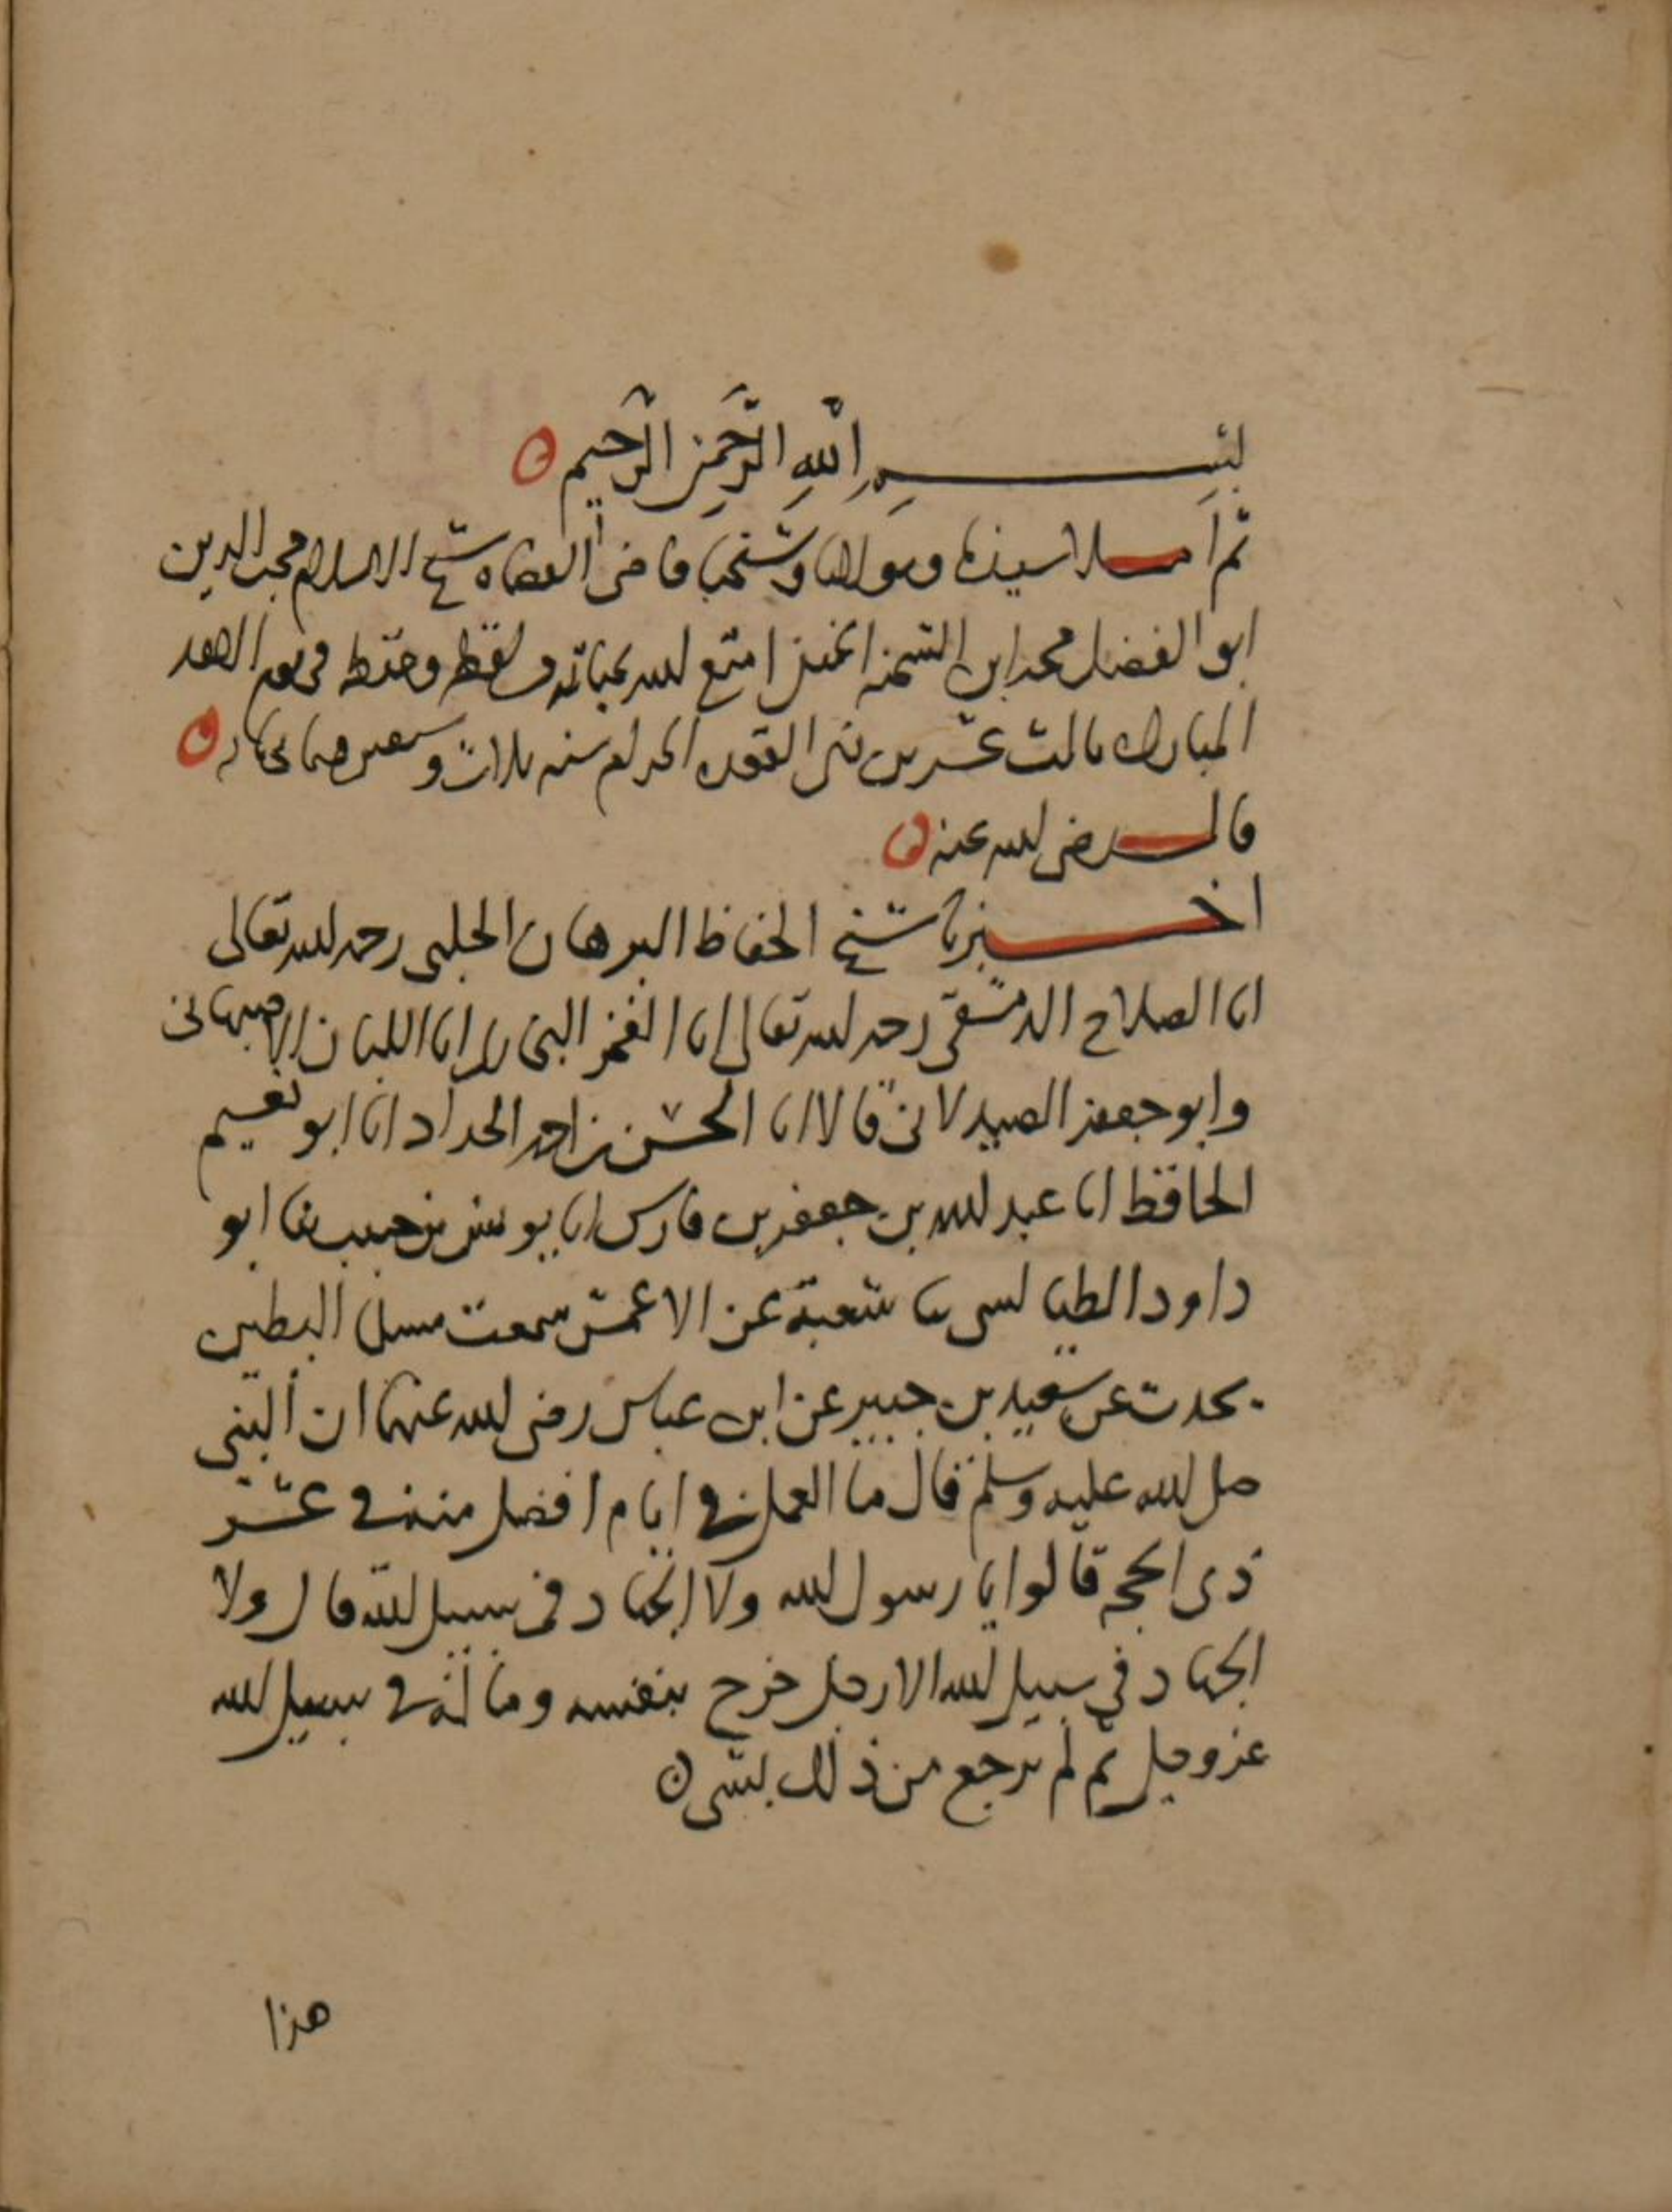 بسم اللهِ الرَّحمنِ الرَّحيم
ثم املا سيدنا ومولانا وشيخنا قاضى القضاه شيخ الاسلام محب الدين
ابو الفضل محمد ابن الشحنه الحنفى امتع الله بحياته ولفظه وحفظه فى يوم الاحد
المبارك ثالث عشرين ذى القعده الحرام سنه ثلاث وسبعين وثمانمايه
قال رضى الله عنه
اخبرنا شيخ الحفاظ البرهان الحلبى رحمه الله تعالى
انا الصلاح الدمشقى رحمه الله تعالى انا الفخر البخارى انا اللبان الاصبهانى
وابو جعفر الصيدلانى قالا انا الحسن بن احمد الحداد انا ابو نعيم
الحافظ انا عبد الله بن جعفر بن فارس انا يونس بن حبيب ثنا ابو
داود الطيالسى ثنا شعبة عن الاعمش سمعت مسلم البطين
يحدث عن سعيد بن جبير عن ابن عباس رضى الله عنهما ان النبى
صلى الله عليه وسلم قال ما العمل فى ايام افضل منه فى عشر
ذى الحجه قالوا يا رسول الله ولا الجهاد فى سبيل الله قال ولا
الجهاد فى سبيل الله الا رجل خرج بنفسه وماله فى سبيل الله
عز وجل ثم لم يرجع من ذلك بشى
هذا